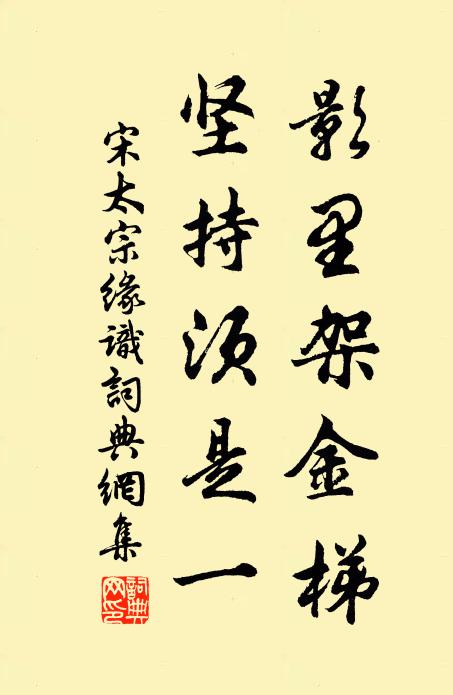 影里架金梯
坚持须是一
宋太宗缘識詞典網集
詞典網印